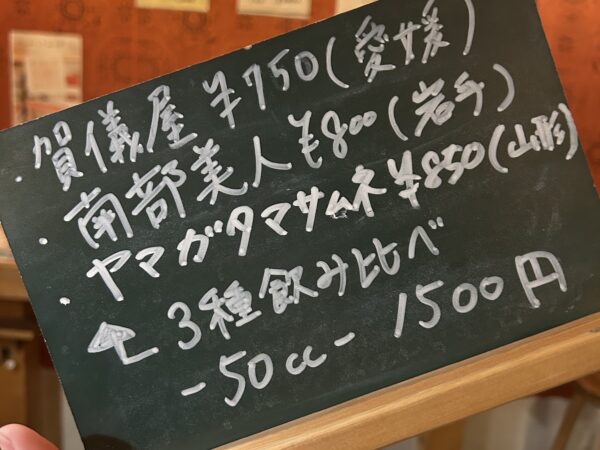 ・賀儀屋 ¥750(愛媛)
・南部美人 ¥800(岩手)
・ヤマガタマサムネ ¥850(山形)
↑3種飲み比べ
-50cc- 1500円